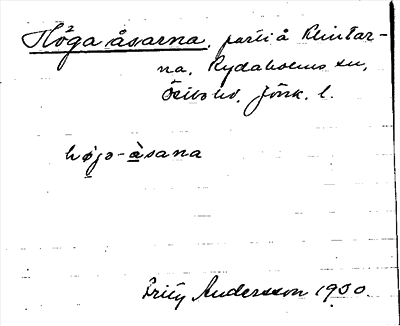 Höga åsarna, parti å Klintar-
na, Rydaholms sn,
Östbo hd, Jönk. l.
högo-åsana
Fritz Andersson 1930.